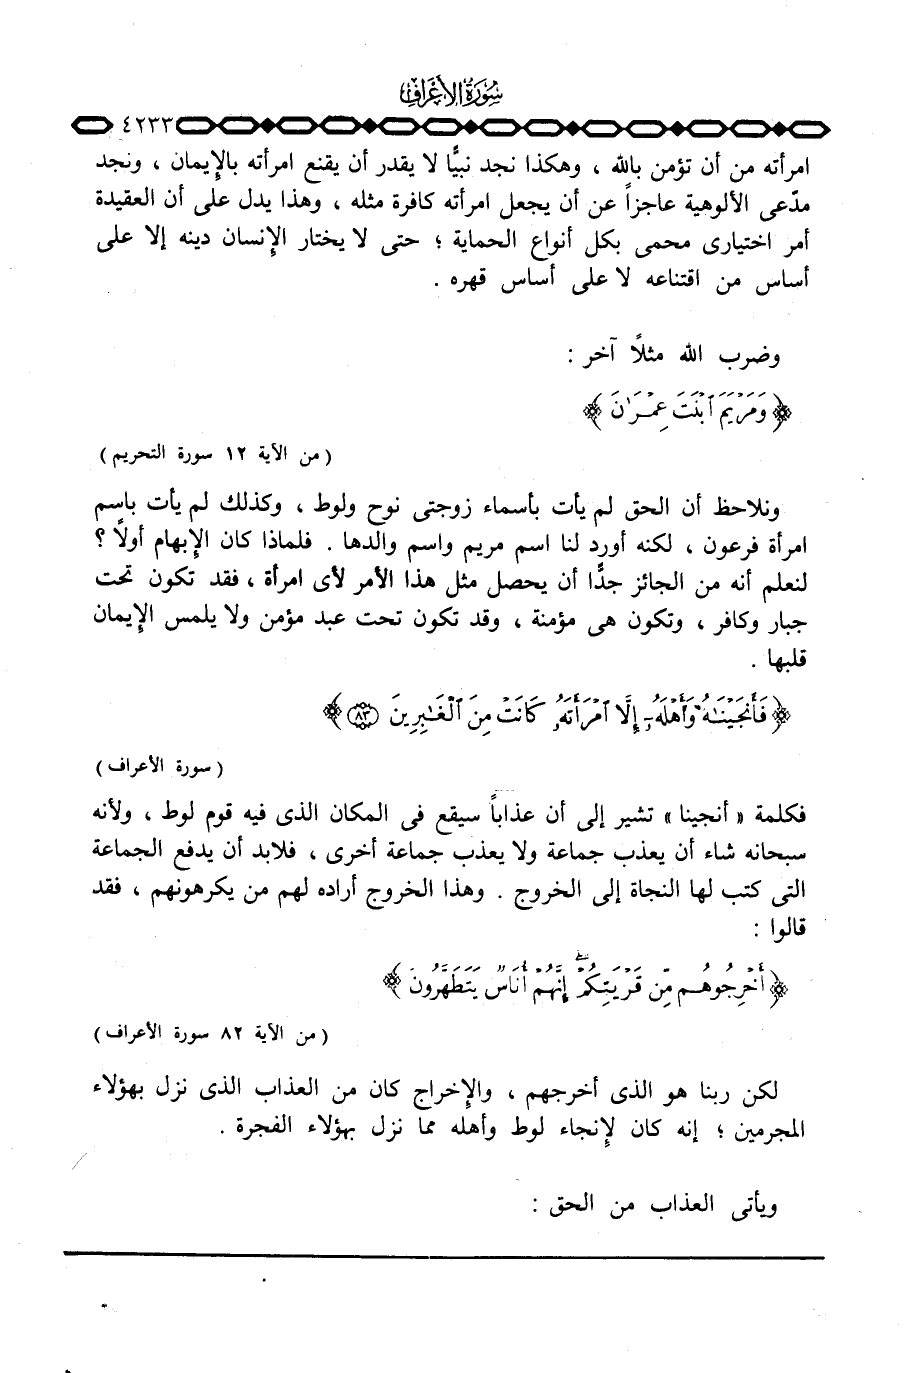 سورة الأعراف
٤٢٣٣
امرأته من أن تؤمن بالله ، وهكذا نجد نبيًّا لا يقدر أن يقنع امرأته بالإيمان ، ونجد
مدّعى الألوهية عاجزاً عن أن يجعل امرأته كافرة مثله ، وهذا يدل على أن العقيدة
أمر اختيارى محمى بكل أنواع الحماية ؛ حتى لا يختار الإنسان دينه إلا على
أساس من اقتناعه لا على أساس قهره .
وضرب الله مثلاً آخر :
﴿ وَمَرْيَمَ ٱبْنَتَ عِمْرَٰنَ ﴾
( من الآية ١٢ سورة التحريم )
ونلاحظ أن الحق لم يأت بأسماء زوجتى نوح ولوط ، وكذلك لم يأت باسم
امرأة فرعون ، لكنه أورد لنا اسم مريم واسم والدها . فلماذا كان الإبهام أولاً ؟
لنعلم أنه من الجائز جدًّا أن يحصل مثل هذا الأمر لأى امرأة ، فقد تكون تحت
جبار وكافر ، وتكون هى مؤمنة ، وقد تكون تحت عبد مؤمن ولا يلمس الإيمان
قلبها .
﴿ فَأَنجَيْنَٰهُ وَأَهْلَهُۥٓ إِلَّا ٱمْرَأَتَهُۥ كَانَتْ مِنَ ٱلْغَٰبِرِينَ ﴿٨٣﴾ ﴾
( سورة الأعراف )
فكلمة « أنجينا » تشير إلى أن عذاباً سيقع فى المكان الذى فيه قوم لوط ، ولأنه
سبحانه شاء أن يعذب جماعة ولا يعذب جماعة أخرى ، فلابد أن يدفع الجماعة
التى كتب لها النجاة إلى الخروج . وهذا الخروج أراده لهم من يكرهونهم ، فقد
قالوا :
﴿ أَخْرِجُوهُم مِّن قَرْيَتِكُمْ ۖ إِنَّهُمْ أُنَاسٌ يَتَطَهَّرُونَ ﴾
( من الآية ٨٢ سورة الأعراف )
لكن ربنا هو الذى أخرجهم ، والإخراج كان من العذاب الذى نزل بهؤلاء
المجرمين ؛ إنه كان لإنجاء لوط وأهله مما نزل بهؤلاء الفجرة .
ويأتى العذاب من الحق :